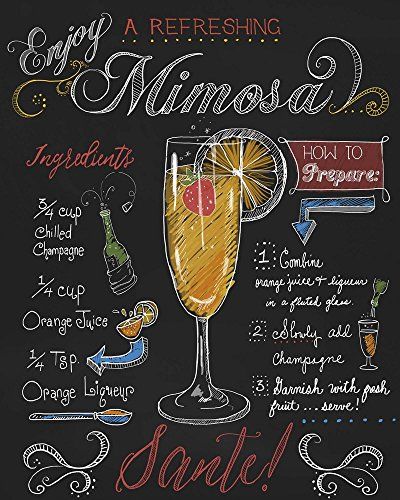 Enjoy
A REFRESHING
Mimosa
Ingredients
3/4 cup
Chilled
Champagne
1/4 cup
Orange Juice
1/4 Tsp.
Orange Liqueur
HOW TO
Prepare:
1. Combine
orange juice & liqueur
in a fluted glass.
2. Slowly add
champagne
3. Garnish with fresh
fruit...serve!
Sante!